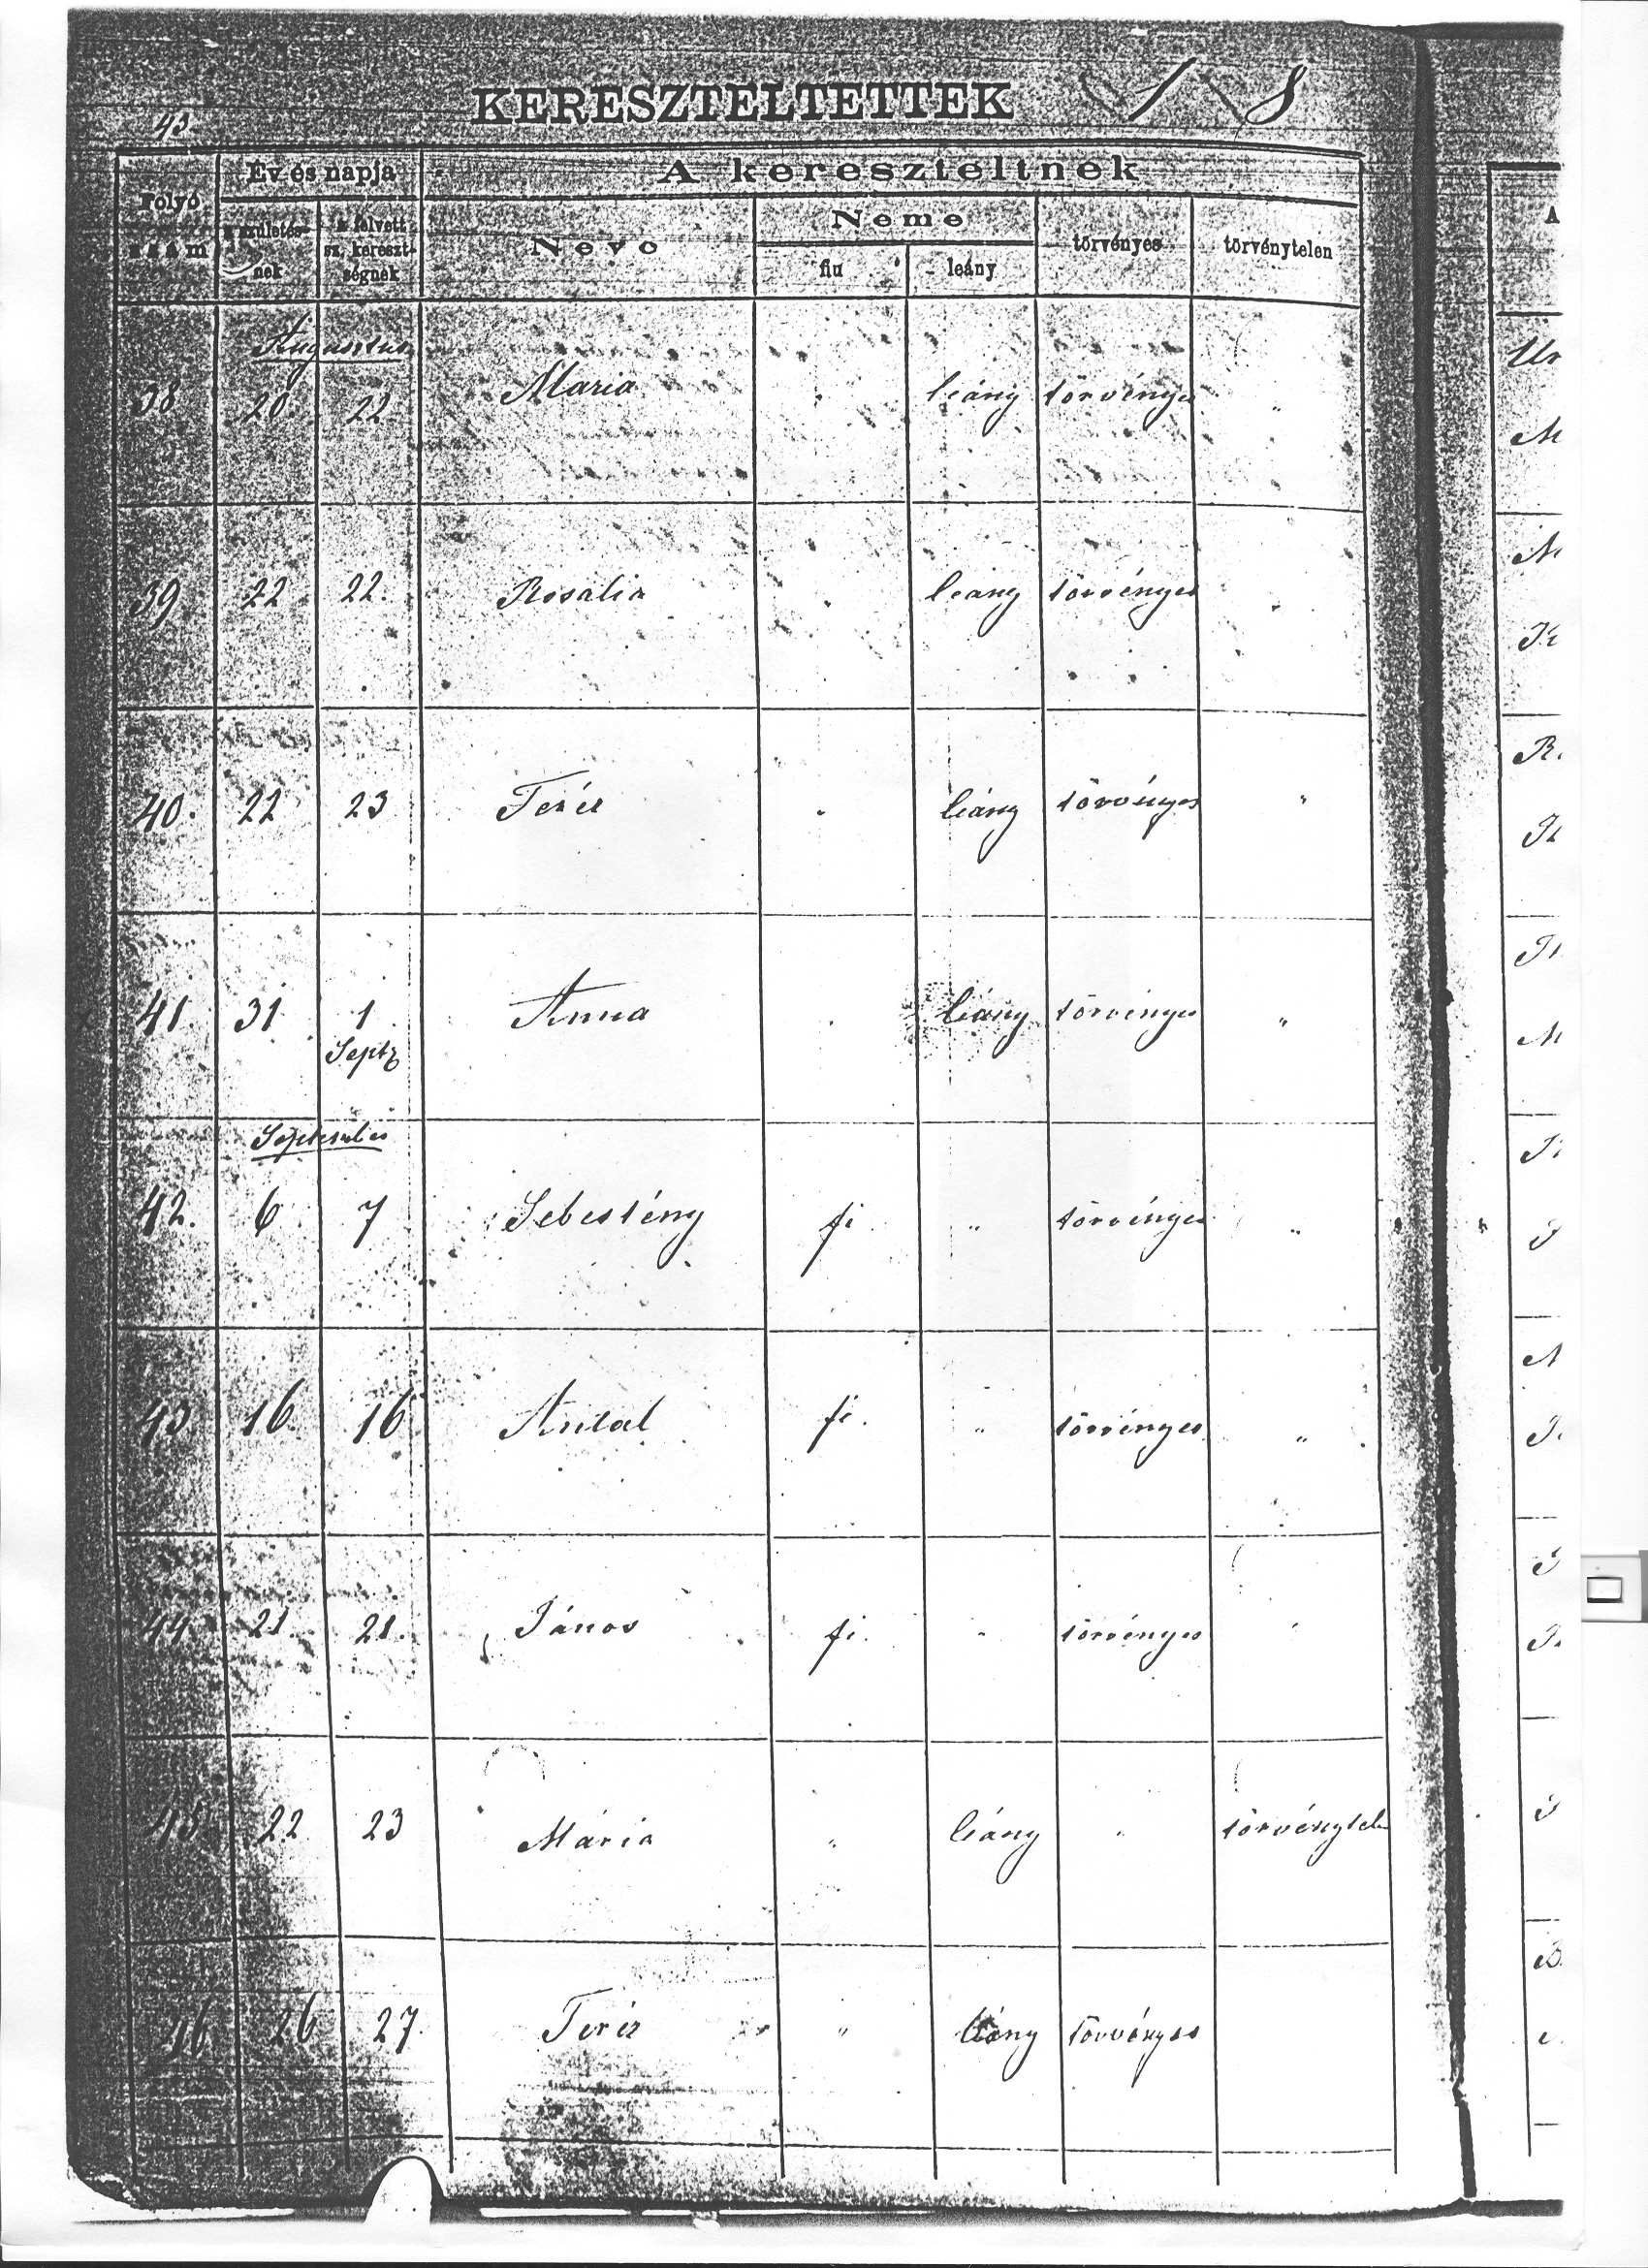 KERESZTELTETTEK 18
43
Folyó szám
Év és napja
a születésnek
a felvett sz. keresztségnek
A kereszteltnek
Neve
Neme
fiu
leány
törvényes
törvénytelen
Augusztus
38 20 22 Maria " leány törvényes "
39 22 22. Rosalia " leány törvényes "
40. 22 23 Teréz " leány törvényes "
41. 31 1 Anna " leány törvényes "
Septb
September
42. 6 7 Sebestény fi " törvényes "
43 16 16 Antal fi. " törvényes "
44 21. 21. János fi. " törvényes "
45 22 23 Mária " leány " törvénytelen
46 26 27. Teréz " leány törvényes